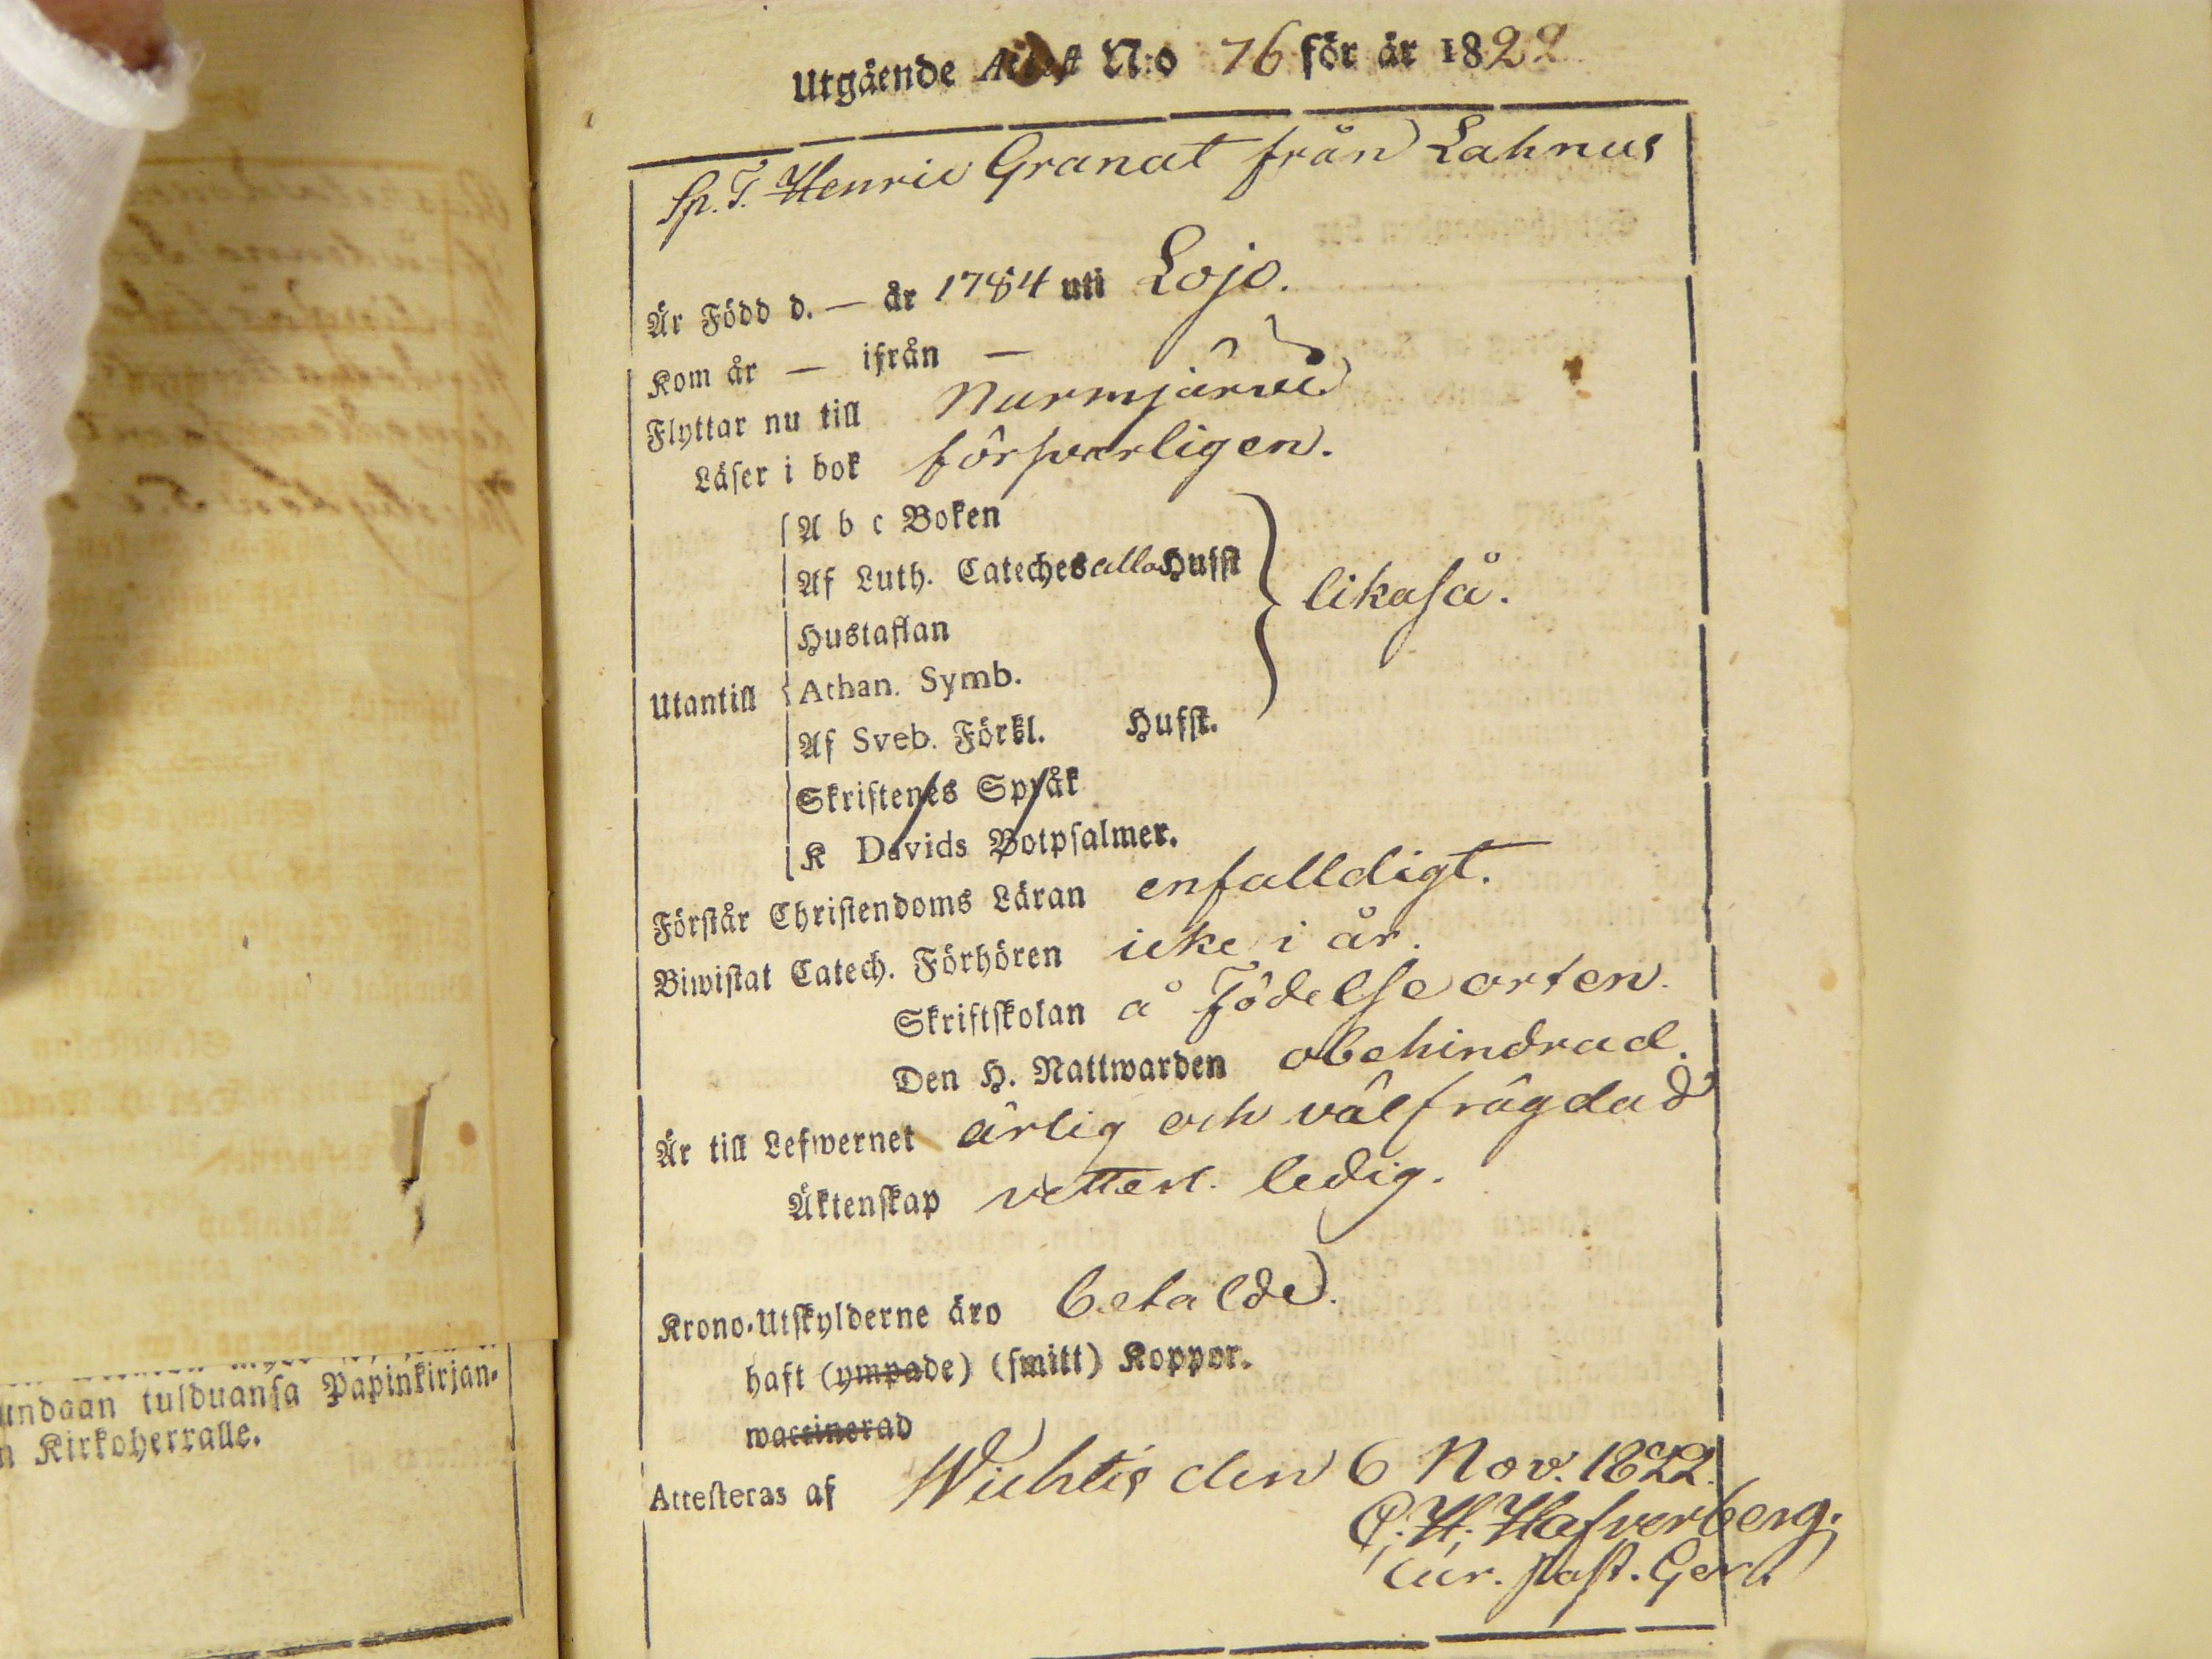 Utgående Attest N:o 76 för år 1822
Sp. T. Henric Granat från Lahnus
Är Född d. — år 1784 uti Lojo.
Kom år — ifrån —
Flyttar nu till Nurmijärvi
Läser i bok försvarligen.
A b c Boken
Af Luth. Cateches alla Hufst
Hustaflan
likaså.
Utantill Athan. Symb.
Af Sveb. Förkl. Hufst.
Skriftenes Språk
K Davids Botpsalmer.
Förstår Christendoms Läran enfalldigt.
Biwistat Catech. Förhören icke i år.
Skriftskolan å Födelse orten.
Den H. Nattwarden obehindrad.
Är till Lefwernet ärlig och välfrägdad
Äktenskap vetterl. ledig.
Krono-Utskylderne äro betalde.
haft (ympade) (smitt) Koppor.
waccinerad
Attesteras af Wichtis den 6 Nov. 1822.
C. H. Hafverberg.
Cur. Past. Ger.
undaan tulduansa Papinkirjan-
n Kirkoherralle.